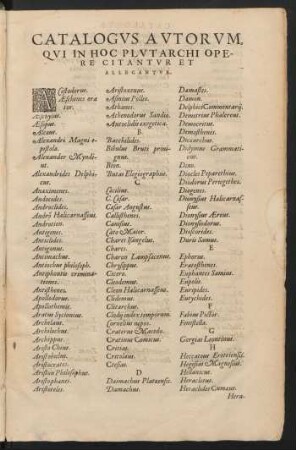 CATALOGVS AVTORVM,
QVI IN HOC PLVTARCHI OPE-
RE CITANTVR ET
ALLEGANTVR.
Aeschines ora
tor.
Aesopus.
Alexandri Magni e-
pistola.
Alexander Myndi-
us.
Alexandrides Delphi-
cus.
Anaximenes.
Andocides.
Androclides.
Androtion.
Antigenes.
Anticlides.
Antigonus.
Antimachus.
Antiochus philosoph.
Antisthenes.
Apollodorus.
Apollothemis.
Aratus Sicyonius.
Archelaus.
Archilochus.
Archippus.
Aristobulus.
Aristocrates.
Ariston Philosophus.
Aristophanes.
Aristoteles.
Aristoxenus.
Asinius Pollio.
Athanis.
Athenodorus Sandō.
Auctoclides exegetica.
B
Bacchilides.
Bibulus Bruti privi-
gnus.
Bion.
Butas Elegiographus.
C
Cæcilius.
C. Cæsar.
Cæsar Augustus.
Callisthenes.
Cassius.
Cato Maior.
Chares Lampsacenus.
Chrysippus.
Cicero.
Cleodemus.
Clidemus.
Clitarchus.
Clodij index temporum.
Cornelius nepos.
Craterus Macedo.
Cratinus Comicus.
Critias.
Cratolaus.
Ctesias.
D
Daimachus Plateensis.
Damachus.
Damastes.
Damon.
Delphici Commentarij.
Demetrius Phalereus.
Democritus.
Demosthenes.
Dicearchus.
Didymus Grammati-
cus.
Dino.
Diocles Peparethius.
Diodorus Periegetes.
Diogenes.
Dionysius Halicarnas-
sus.
Dionysodorus.
Dioscorides.
Duris Samius.
E
Ephorus.
Eratosthenes.
Euphantus Samius.
Eupolis.
Euripides.
F
Fabius Pictor.
Fenestella.
G
Gorgias Leontinus.
H
Hecateus Eretriensis.
Hegesias Magnesius.
Hellanicus.
Heraclitus.
Heraclides Cumæus.
Hera-